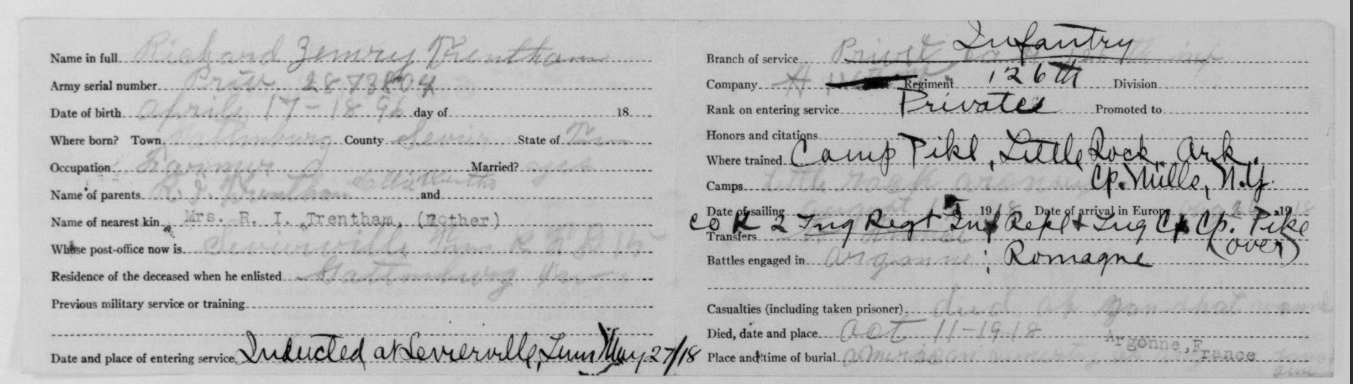 Name in full Richard Zemry Trentham
Army serial number Priv 2873804
Date of birth April 17-1896 day of 18
Where born? Town County Sevier State of Tenn
Occupation Farmer Married? yes
Name of parents R. I. Trentham and
Name of nearest kin Mrs. R. I. Trentham, (mother)
Whose post-office now is Sevierville Tenn R F D 15
Residence of the deceased when he enlisted Gatlinburg Tenn
Previous military service or training
Date and place of entering service Inducted at Sevierville, Tenn May 27/18
Branch of service Infantry
Company A Regiment 126th Division
Rank on entering service Private Promoted to
Honors and citations
Where trained Camp Pike, Little Rock, Ark.
Camps Little rock Cp. Mills, N.Y.
Date of sailing august 1918 Date of arrival in Europe 1918
Co K 2 Tng Regt Inf Repl & Tng Cp Cp. Pike
Transfers (over)
Battles engaged in Argonne; Romagne
Casualties (including taken prisoner) died of
Died, date and place Oct 11-1918
Argonne, France
Place and time of burial american